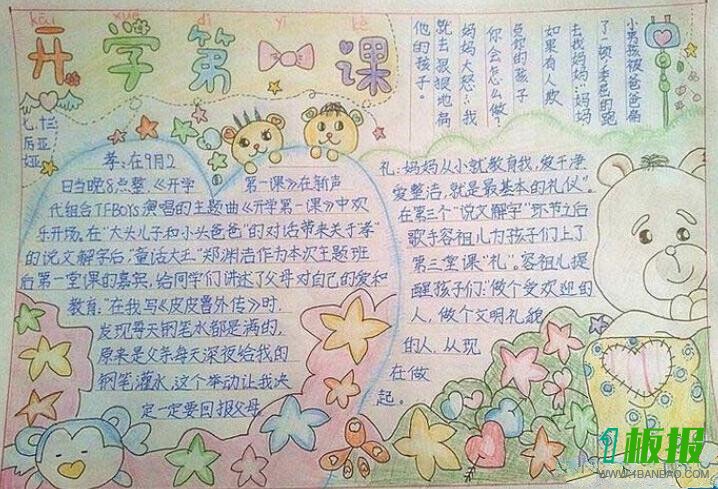 kāi xué dì yī kè
开学第一课
七.十三
厉
亚
娅
小男孩被爸爸扁
了一顿,委屈的跑
去找妈妈:"妈妈
如果有人欺
负你的孩子
你会怎么做?"
妈妈大怒:"我
就去狠狠地扁
他的孩子。
孝:在9月2
日当晚8点整,《开学第一课》在新声
代组合TFBOYS演唱的主题曲《开学第一课》中欢
乐开场。在"大头儿子和小头爸爸"的对话带来关于"孝"
的说文解字后,"童话大王"郑渊洁作为本次主题班
后第一堂课的嘉宾,给同学们讲述了父母对自己的爱和
教育,"在我写《皮皮鲁外传》时,
发现每天钢笔水都是满的,
原来是父亲每天深夜给我的
钢笔灌水,这个举动让我决
定一定要回报父母
礼:妈妈从小就教育我,爱干净
爱整洁,就是最基本的礼仪"。
在第三个"说文解字"环节之后
歌手容祖儿为孩子们上了
第三堂课"礼"。容祖儿提
醒孩子们:"做个受欢迎的
人,做个文明礼貌
的人,从现
在做
起。
1板报
WWW.1BANBAO.COM